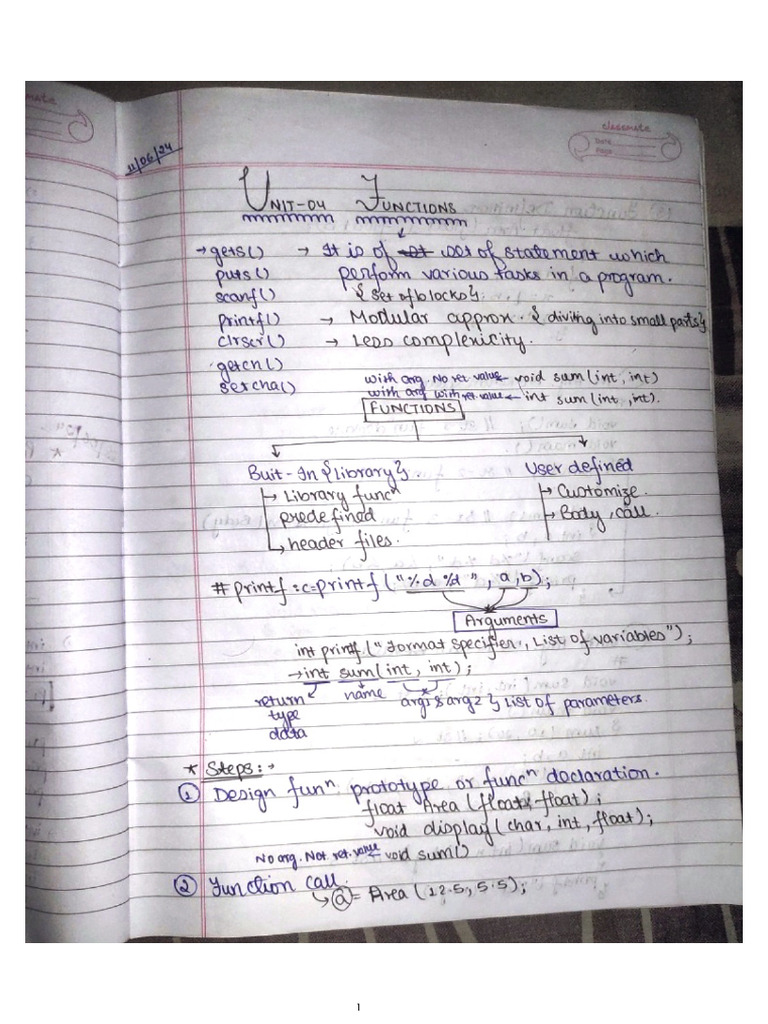 classmate
Date
Page
11/06/24
UNIT-04 FUNCTIONS
→ gets() → It is of set of statement which
puts() perform various tasks in a program.
scanf() { set of blocks }.
printf() → Modular approx. { diviting into small parts }
clrscr() → Less complexicity.
getch()
with arg. No ret. value ← void sum(int, int)
with arg with ret. value ← int sum(int, int).
FUNCTIONS
Buit-In {library}. User defined
→ Library funcⁿ → Customize.
predefined → Body, call.
→ header files.
# printf : c=printf("%d %d", a,b);
Arguments
int printf("Format specifier, List of variables");
→ int sum(int, int);
return name arg1 & arg2 } List of parameters.
type
data
* Steps:→
① Design funⁿ prototype or funcⁿ declaration.
float Area (float, float);
void display(char, int, float);
No arg. Not ret. value ← void sum()
② Function call.
↳ a = Area (12.5, 5.5);
1